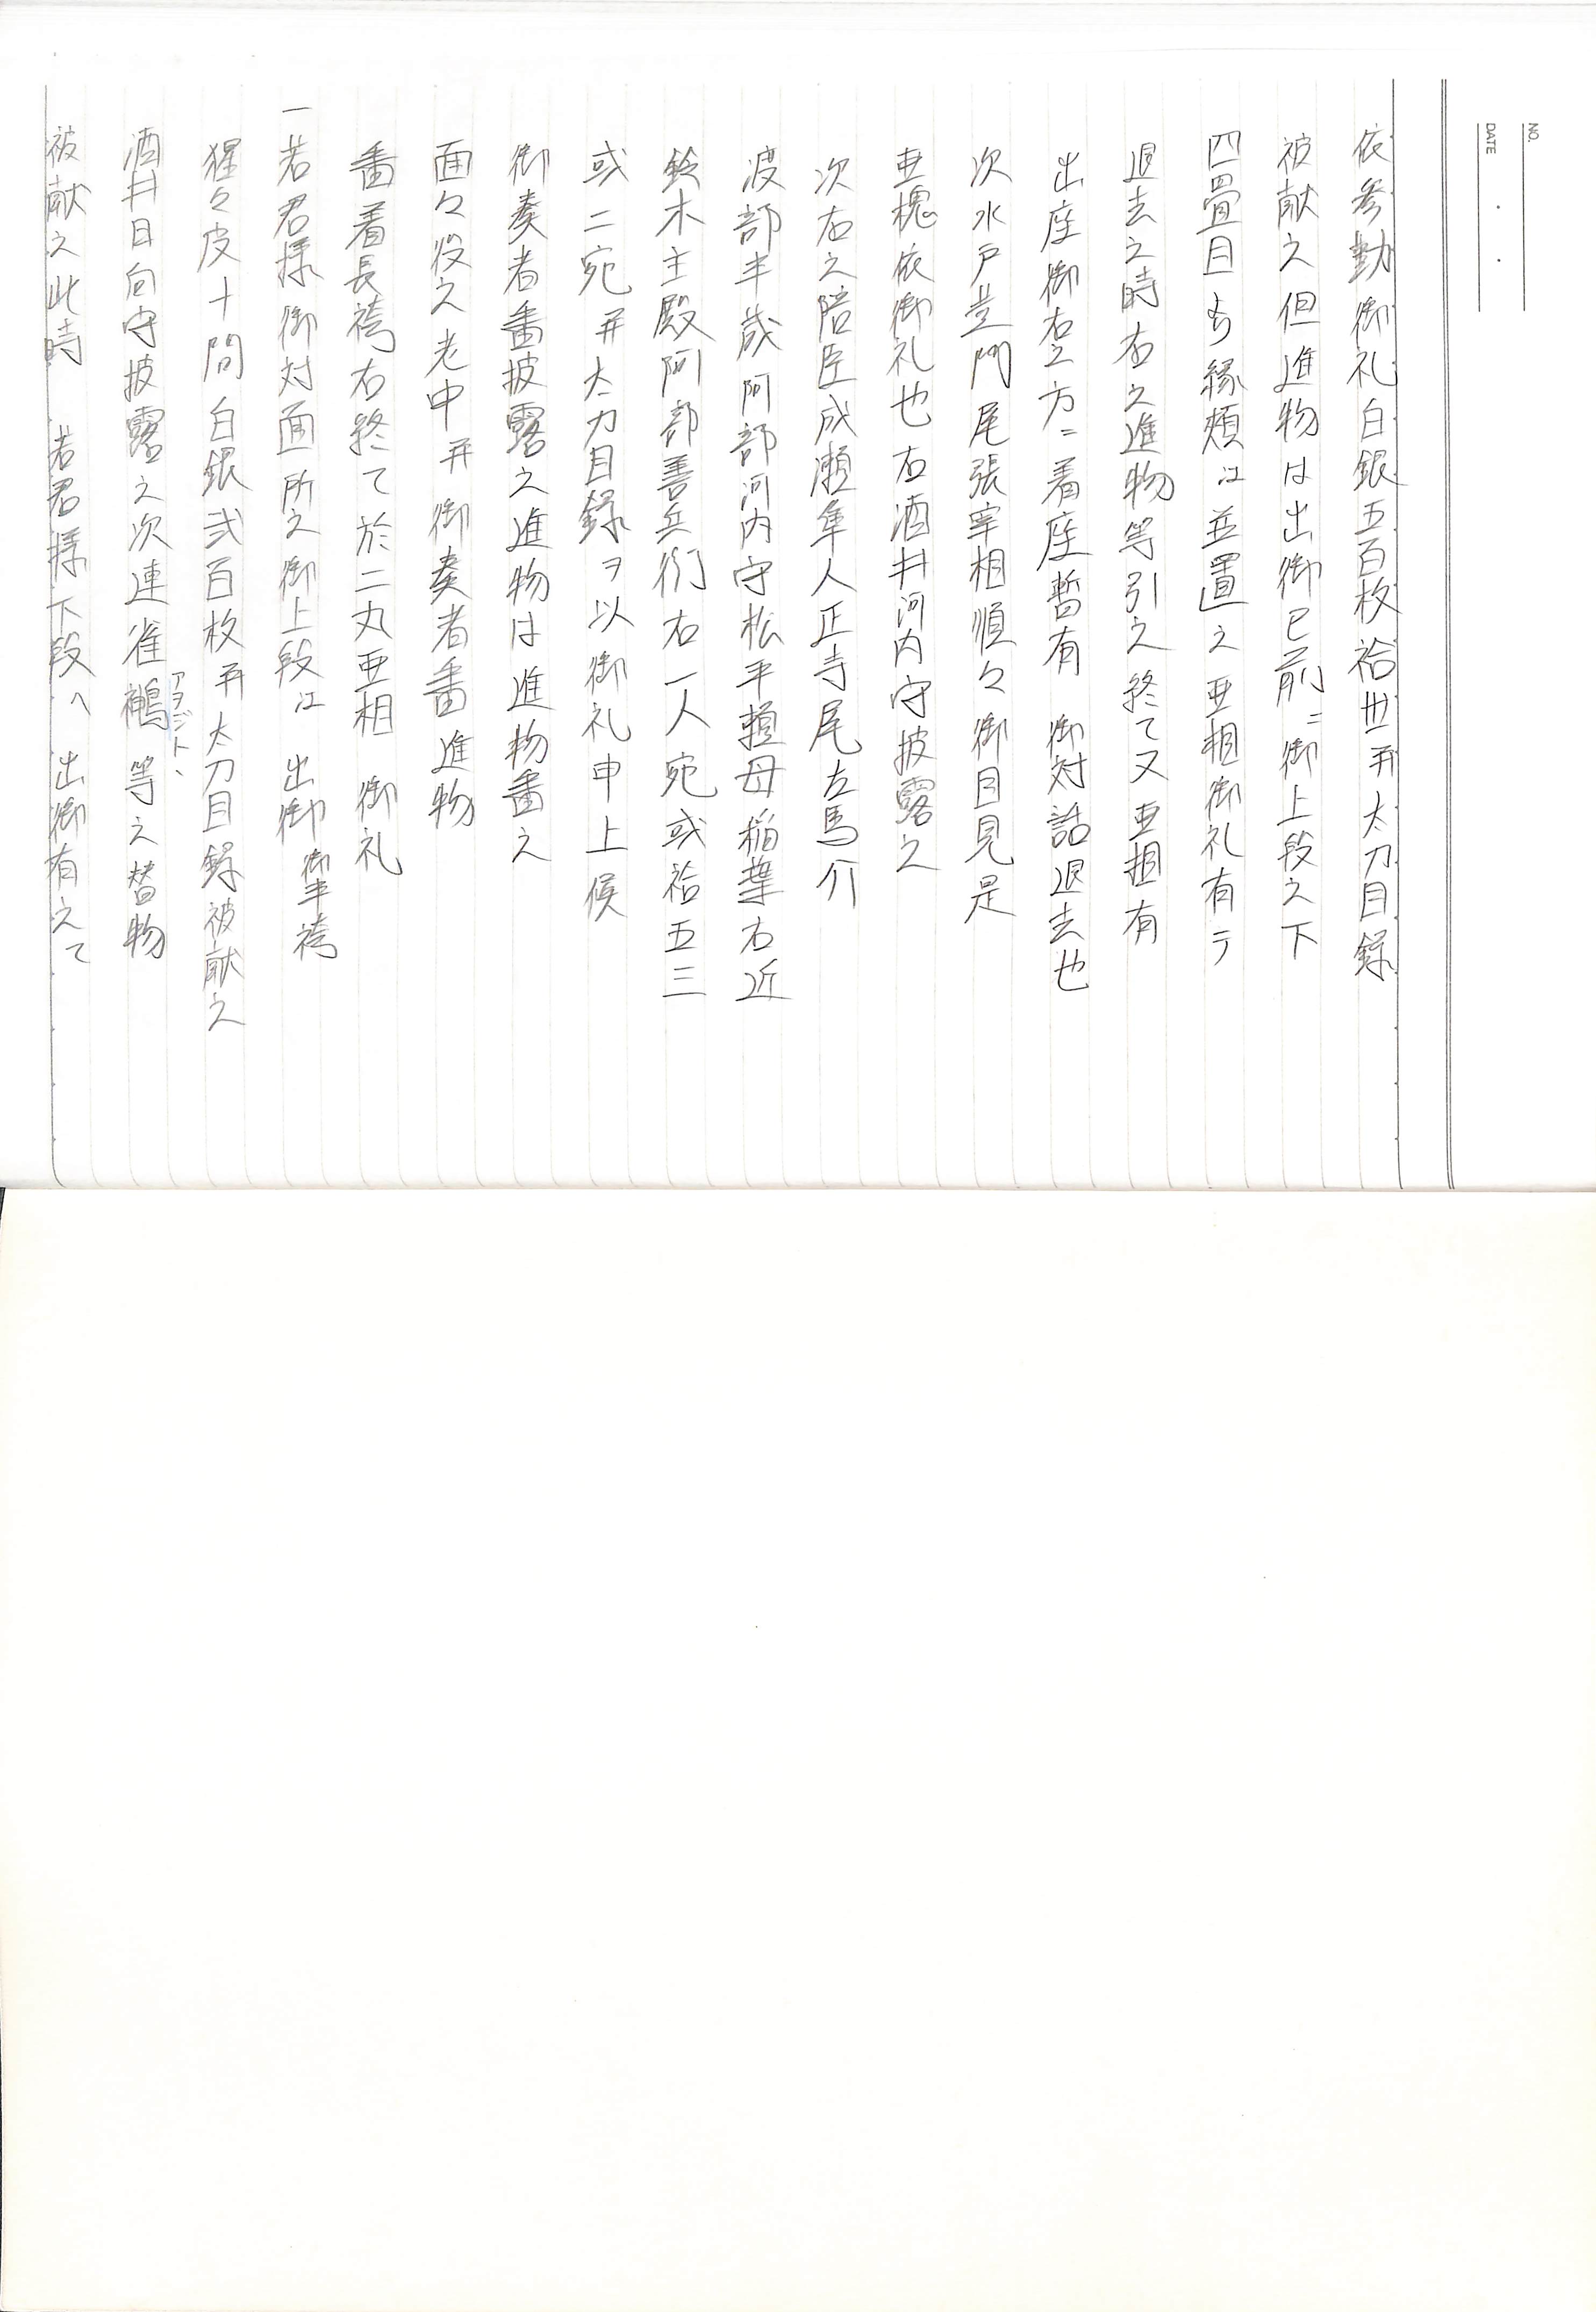 NO.
DATE
依参勤御礼白銀五百枚袷卅并太刀目録
被献之但進物は出御已前ニ御上段之下
四畳目ゟ縁頬江並置之亜相御礼有テ
退去之時右之進物等引之終て又亜相有
出座御右之方ニ着座暫有 御対話退去也
次水戸黄門尾張宰相順々御目見是
亜槐依御礼也右酒井河内守披露之
次右之陪臣成瀬隼人正寺尾左馬介
渡部半蔵阿部河内守松平頼母稲葉右近
鈴木主殿阿部善兵衛右一人宛或袷五三
或二宛并太刀目録ヲ以御礼申上候
御奏者番披露之進物は進物番之
面々役之老中并御奏者番進物
番着長袴右終て於二丸亜相 御礼
一若君様御対面所之御上段江 出御御半袴
猩々皮十間白銀弐百枚并太刀目録被献之
酒井日向守披露之次連雀鵐等之替物
アヲジト、
被献之此時 若君様下段へ 出御有之て